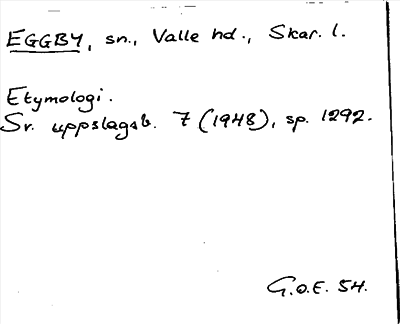 EGGBY, sn., Valle hd., Skar. l.
Etymologi.
Sv. uppslagsb. 7 (1948), sp. 1292.
G.O.E. 54.